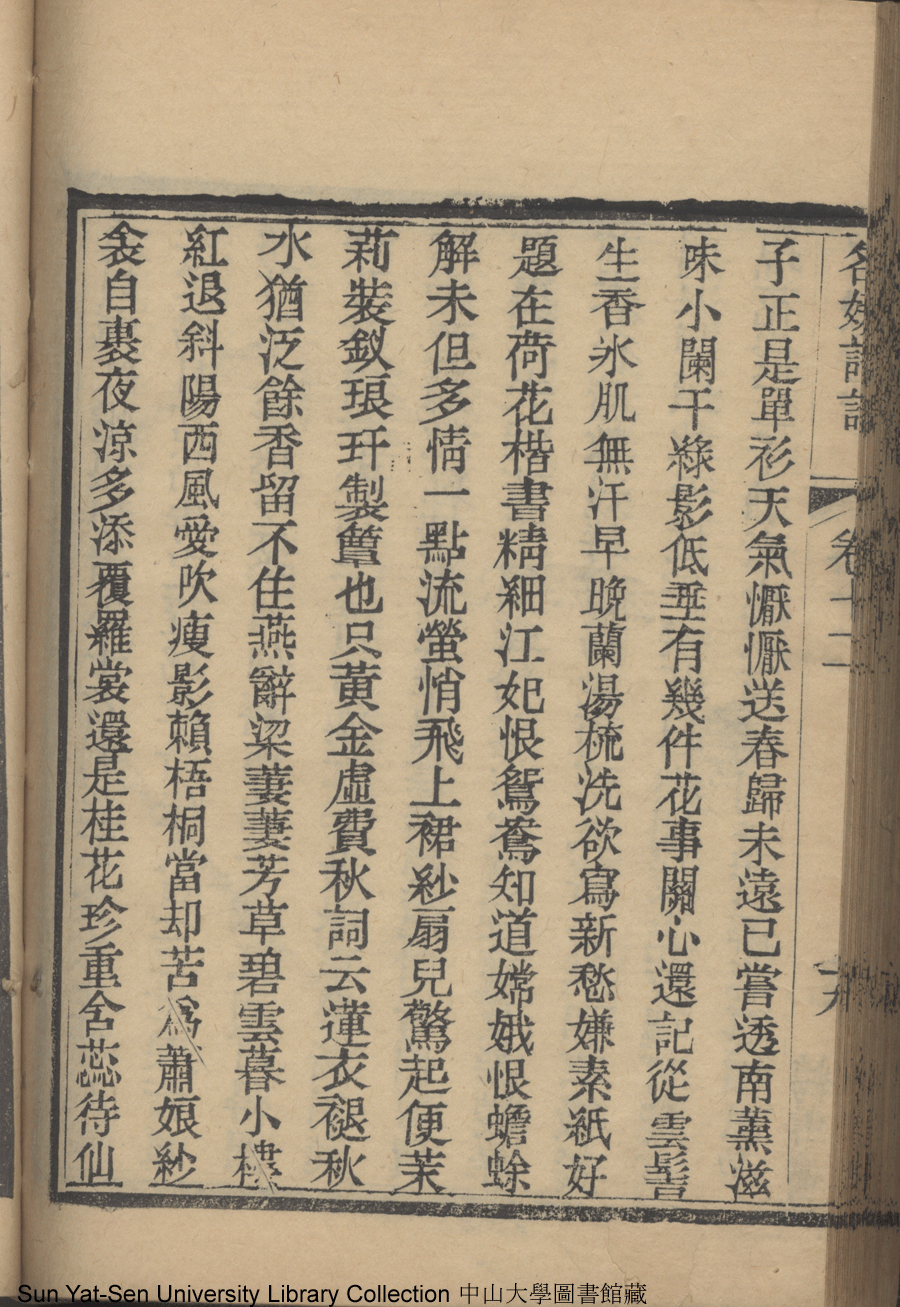 名媛詩話 卷十二 十九
子正是單衫天氣懨懨送春歸未遠已嘗透南薰滋
味小闌干綠影低垂有幾件花事關心還記從雲髻
生香氷肌無汗早晚蘭湯梳洗欲寫新愁嫌素紙好
題在荷花楷書精細江妃恨鴛鴦知道嫦娥恨蟾蜍
解未但多情一點流螢悄飛上裙紗扇兒驚起便茉
莉裝釵琅玕製簟也只黃金虛費秋詞云蓮衣褪秋
水猶泛餘香留不住燕辭梁萋萋芳草碧雲暮小樓
紅退斜陽西風愛吹瘦影賴梧桐當却苦爲蕭娘紗
衾自裹夜凉多添覆羅裳還是桂花珍重含蕊待仙
Sun Yat-Sen University Library Collection 中山大學圖書館藏